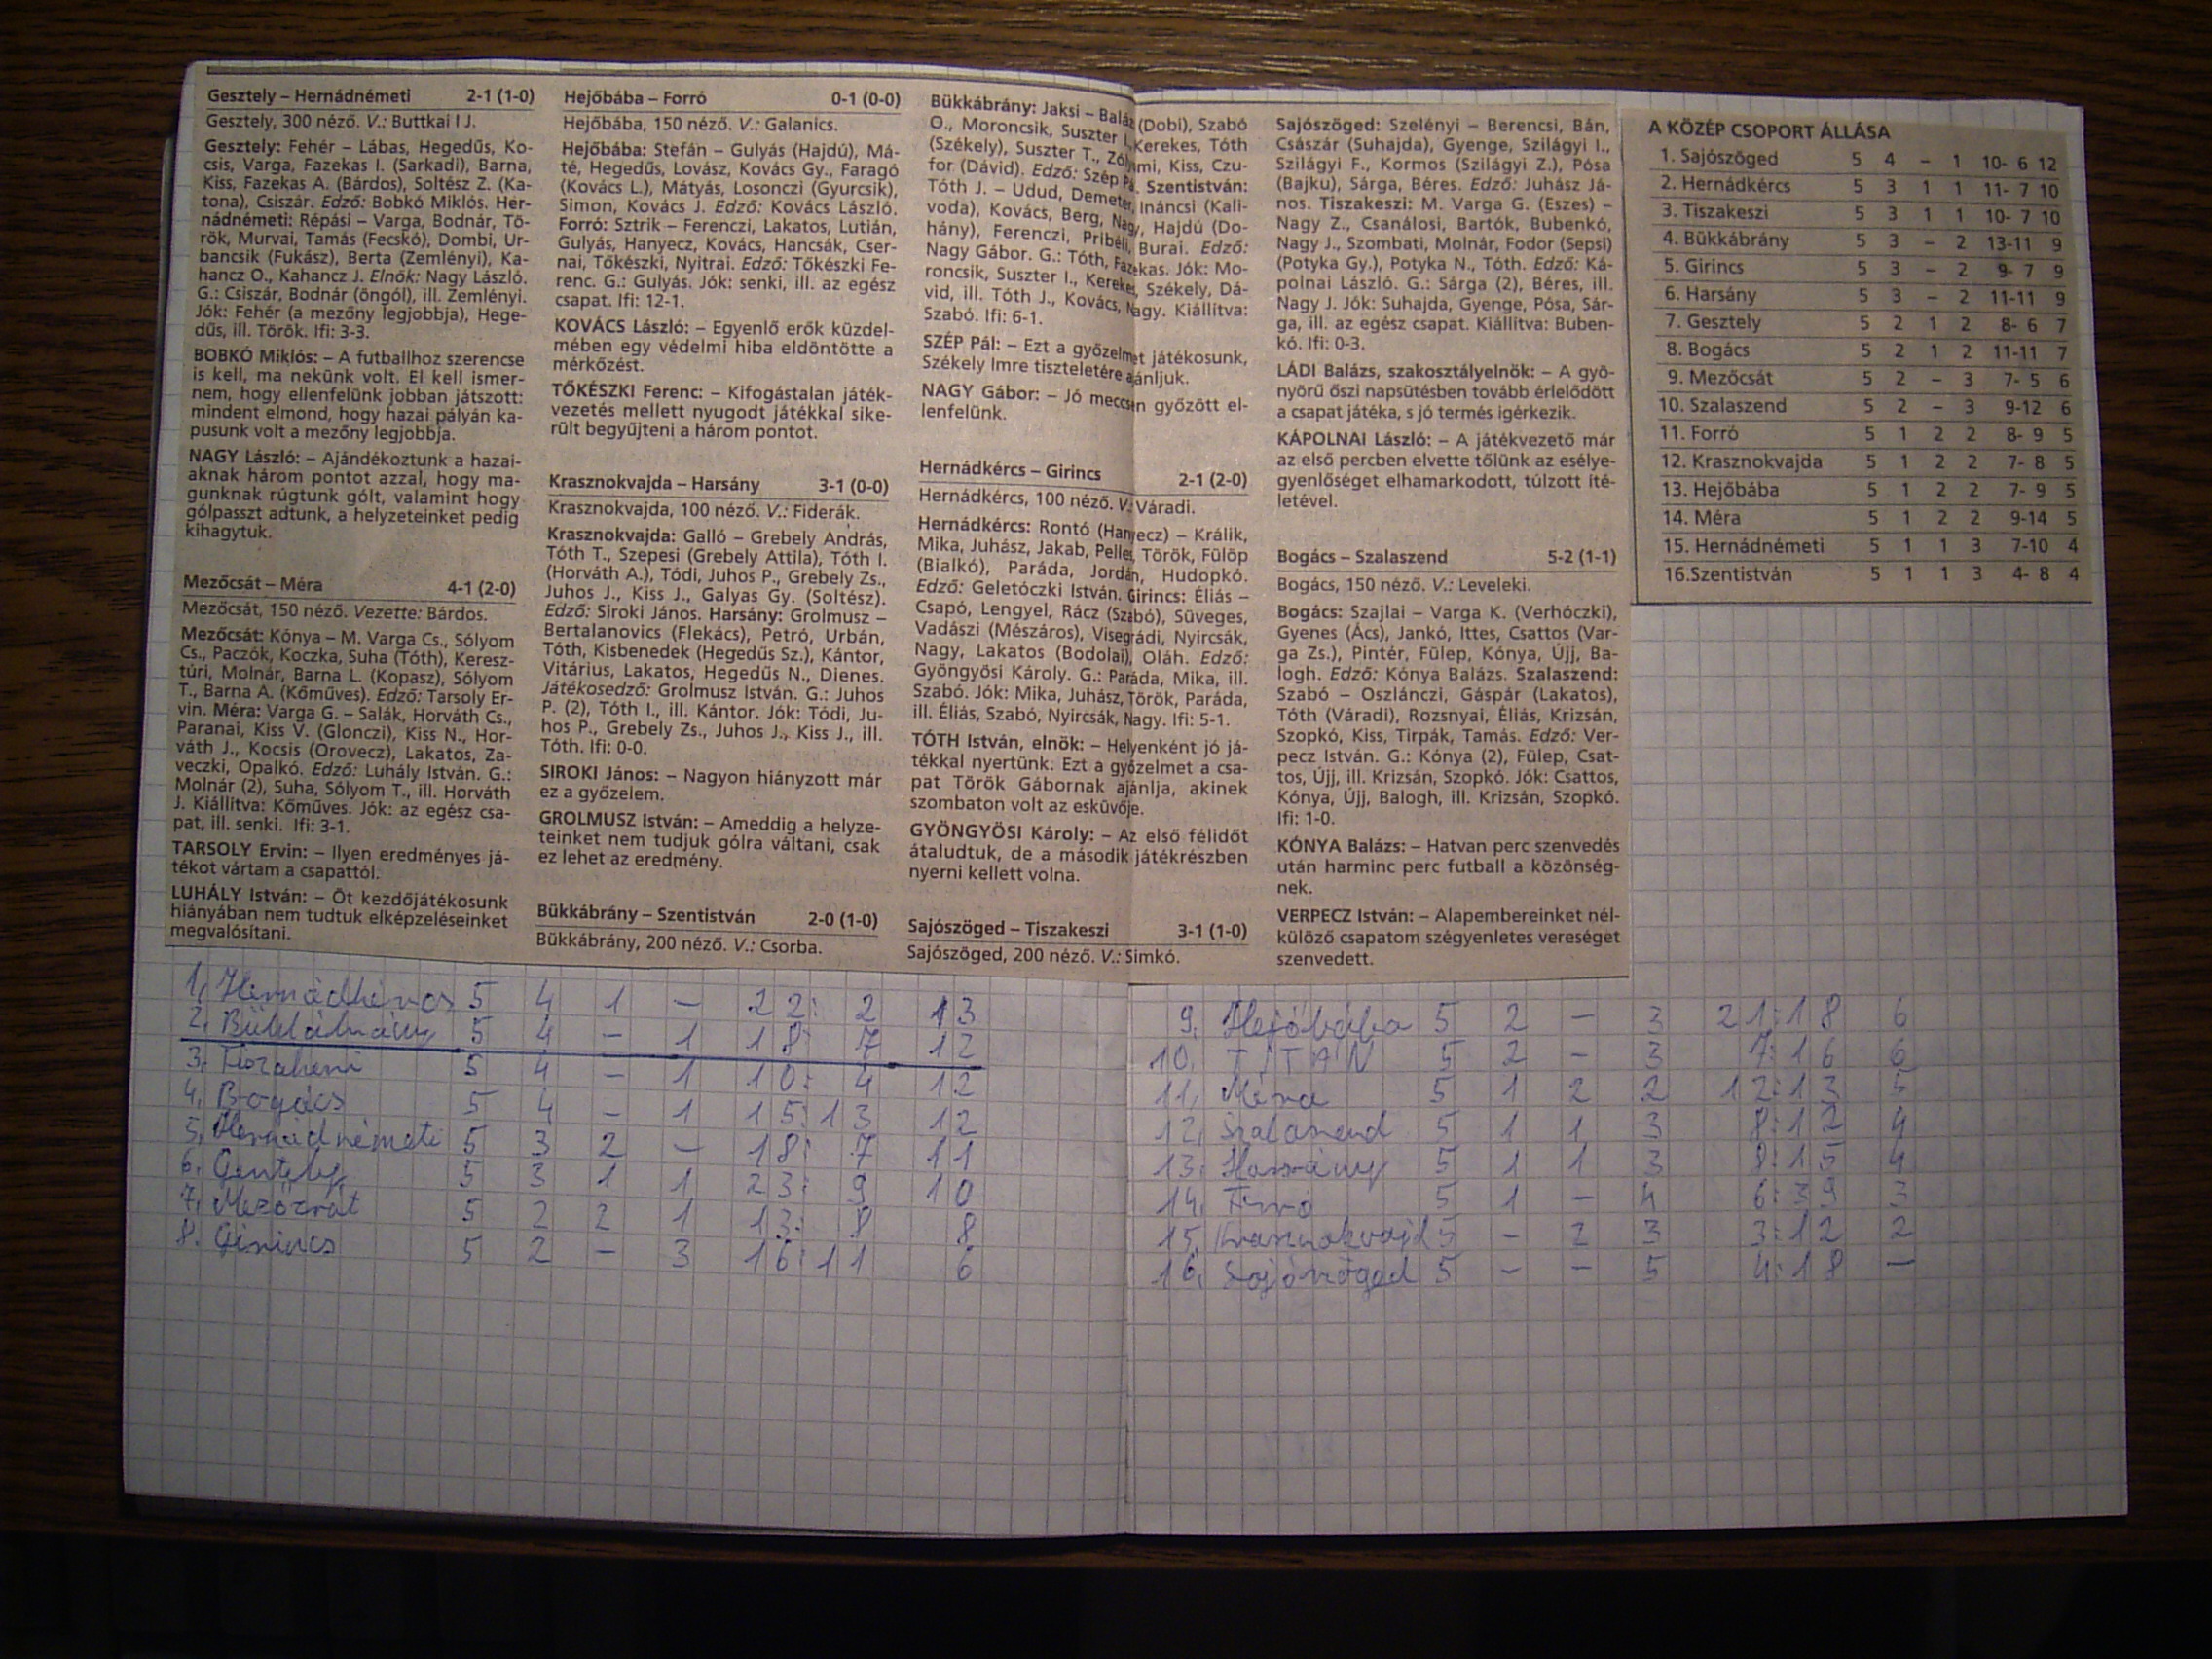 Gesztely – Hernádnémeti 2-1 (1-0)
Gesztely, 300 néző. V.: Buttkai I J.
Gesztely: Fehér – Lábas, Hegedűs, Ko-
csis, Varga, Fazekas I. (Sarkadi), Barna,
Kiss, Fazekas A. (Bárdos), Soltész Z. (Ka-
tona), Csiszár. Edző: Bobkó Miklós. Her-
nádnémeti: Répási – Varga, Bodnár, Tö-
rök, Murvai, Tamás (Fecskó), Dombi, Ur-
bancsik (Fukász), Berta (Zemlényi), Ka-
hancz O., Kahancz J. Elnök: Nagy László.
G.: Csiszár, Bodnár (öngól), ill. Zemlényi.
Jók: Fehér (a mezőny legjobbja), Hege-
dűs, ill. Török. Ifi: 3-3.
BOBKÓ Miklós: – A futballhoz szerencse
is kell, ma nekünk volt. El kell ismer-
nem, hogy ellenfelünk jobban játszott:
mindent elmond, hogy hazai pályán ka-
pusunk volt a mezőny legjobbja.
NAGY László: – Ajándékoztunk a hazai-
aknak három pontot azzal, hogy ma-
gunknak rúgtunk gólt, valamint hogy
gólpasszt adtunk, a helyzeteinket pedig
kihagytuk.
Mezőcsát – Méra 4-1 (2-0)
Mezőcsát, 150 néző. Vezette: Bárdos.
Mezőcsát: Kónya – M. Varga Cs., Sólyom
Cs., Paczók, Koczka, Suha (Tóth), Keresz-
túri, Molnár, Barna L. (Kopasz), Sólyom
T., Barna A. (Kőműves). Edző: Tarsoly Er-
vin. Méra: Varga G. – Salák, Horváth Cs.,
Paranai, Kiss V. (Glonczi), Kiss N., Hor-
váth J., Kocsis (Orovecz), Lakatos, Za-
veczki, Opalkó. Edző: Luhály István. G.:
Molnár (2), Suha, Sólyom T., ill. Horváth
J. Kiállítva: Kőműves. Jók: az egész csa-
pat, ill. senki. Ifi: 3-1.
TARSOLY Ervin: – Ilyen eredményes já-
tékot vártam a csapattól.
LUHÁLY István: – Öt kezdőjátékosunk
hiányában nem tudtuk elképzeléseinket
megvalósítani.
Hejőbába – Forró 0-1 (0-0)
Hejőbába, 150 néző. V.: Galanics.
Hejőbába: Stefán – Gulyás (Hajdú), Má-
té, Hegedűs, Lovász, Kovács Gy., Faragó
(Kovács L.), Mátyás, Losonczi (Gyurcsik),
Simon, Kovács J. Edző: Kovács László.
Forró: Sztrik – Ferenczi, Lakatos, Lutián,
Gulyás, Hanyecz, Kovács, Hancsák, Cser-
nai, Tőkészki, Nyitrai. Edző: Tőkészki Fe-
renc. G.: Gulyás. Jók: senki, ill. az egész
csapat. Ifi: 12-1.
KOVÁCS László: – Egyenlő erők küzdel-
mében egy védelmi hiba eldöntötte a
mérkőzést.
TŐKÉSZKI Ferenc: – Kifogástalan játék-
vezetés mellett nyugodt játékkal sike-
rült begyűjteni a három pontot.
Krasznokvajda – Harsány 3-1 (0-0)
Krasznokvajda, 100 néző. V.: Fiderák.
Krasznokvajda: Galló – Grebely András,
Tóth T., Szepesi (Grebely Attila), Tóth I.
(Horváth A.), Tódi, Juhos P., Grebely Zs.,
Juhos J., Kiss J., Galyas Gy. (Soltész).
Edző: Siroki János. Harsány: Grolmusz –
Bertalanovics (Flekács), Petró, Urbán,
Tóth, Kisbenedek (Hegedűs Sz.), Kántor,
Vitárius, Lakatos, Hegedűs N., Dienes.
Játékosedző: Grolmusz István. G.: Juhos
P. (2), Tóth I., ill. Kántor. Jók: Tódi, Ju-
hos P., Grebely Zs., Juhos J., Kiss J., ill.
Tóth. Ifi: 0-0.
SIROKI János: – Nagyon hiányzott már
ez a győzelem.
GROLMUSZ István: – Ameddig a helyze-
teinket nem tudjuk gólra váltani, csak
ez lehet az eredmény.
Bükkábrány – Szentistván 2-0 (1-0)
Bükkábrány, 200 néző. V.: Csorba.
Bükkábrány: Jaksi – Baláz (Dobi), Szabó
O., Moroncsik, Suszter I., Kerekes, Tóth
(Székely), Suszter T., Zólyomi, Kiss, Czu-
for (Dávid). Edző: Szép Pá. Szentistván:
Tóth J. – Udud, Demeter, Ináncsi (Kali-
voda), Kovács, Berg, Nagy, Hajdú (Do-
hány), Ferenczi, Pribéli, Burai. Edző:
Nagy Gábor. G.: Tóth, Fazekas. Jók: Mo-
roncsik, Suszter I., Kerekes, Székely, Dá-
vid, ill. Tóth J., Kovács, Nagy. Kiállítva:
Szabó. Ifi: 6-1.
SZÉP Pál: – Ezt a győzelmet játékosunk,
Székely Imre tiszteletére ajánljuk.
NAGY Gábor: – Jó meccsen győzött el-
lenfelünk.
Hernádkércs – Girincs 2-1 (2-0)
Hernádkércs, 100 néző. V.: Váradi.
Hernádkércs: Rontó (Hanyecz) – Králik,
Mika, Juhász, Jakab, Pelles, Török, Fülöp
(Bialkó), Paráda, Jordán, Hudopkó.
Edző: Geletóczki István. Girincs: Éliás –
Csapó, Lengyel, Rácz (Szabó), Süveges,
Vadászi (Mészáros), Visegrádi, Nyircsák,
Nagy, Lakatos (Bodolai), Oláh. Edző:
Gyöngyösi Károly. G.: Paráda, Mika, ill.
Szabó. Jók: Mika, Juhász, Török, Paráda,
ill. Éliás, Szabó, Nyircsák, Nagy. Ifi: 5-1.
TÓTH István, elnök: – Helyenként jó já-
tékkal nyertünk. Ezt a győzelmet a csa-
pat Török Gábornak ajánlja, akinek
szombaton volt az esküvője.
GYÖNGYÖSI Károly: – Az első félidőt
átaludtuk, de a második játékrészben
nyerni kellett volna.
Sajószöged – Tiszakeszi 3-1 (1-0)
Sajószöged, 200 néző. V.: Simkó.
Sajószöged: Szelényi – Berencsi, Bán,
Császár (Suhajda), Gyenge, Szilágyi I.,
Szilágyi F., Kormos (Szilágyi Z.), Pósa
(Bajku), Sárga, Béres. Edző: Juhász Já-
nos. Tiszakeszi: M. Varga G. (Eszes) –
Nagy Z., Csanálosi, Bartók, Bubenkó,
Nagy J., Szombati, Molnár, Fodor (Sepsi)
(Potyka Gy.), Potyka N., Tóth. Edző: Ká-
polnai László. G.: Sárga (2), Béres, ill.
Nagy J. Jók: Suhajda, Gyenge, Pósa, Sár-
ga, ill. az egész csapat. Kiállítva: Buben-
kó. Ifi: 0-3.
LÁDI Balázs, szakosztályelnök: – A gyö-
nyörű őszi napsütésben tovább érlelődött
a csapat játéka, s jó termés igérkezik.
KÁPOLNAI László: – A játékvezető már
az első percben elvette tőlünk az esélye-
gyenlőséget elhamarkodott, túlzott íté-
letével.
Bogács – Szalaszend 5-2 (1-1)
Bogács, 150 néző. V.: Leveleki.
Bogács: Szajlai – Varga K. (Verhóczki),
Gyenes (Ács), Jankó, Ittes, Csattos (Var-
ga Zs.), Pintér, Fülep, Kónya, Újj, Ba-
logh. Edző: Kónya Balázs. Szalaszend:
Szabó – Oszlánczi, Gáspár (Lakatos),
Tóth (Váradi), Rozsnyai, Éliás, Krizsán,
Szopkó, Kiss, Tirpák, Tamás. Edző: Ver-
pecz István. G.: Kónya (2), Fülep, Csat-
tos, Újj, ill. Krizsán, Szopkó. Jók: Csattos,
Kónya, Újj, Balogh, ill. Krizsán, Szopkó.
Ifi: 1-0.
KÓNYA Balázs: – Hatvan perc szenvedés
után harminc perc futball a közönség-
nek.
VERPECZ István: – Alapembereinket nél-
külöző csapatom szégyenletes vereséget
szenvedett.
A KÖZÉP CSOPORT ÁLLÁSA
1. Sajószöged 5 4 – 1 10- 6 12
2. Hernádkércs 5 3 1 1 11- 7 10
3. Tiszakeszi 5 3 1 1 10- 7 10
4. Bükkábrány 5 3 – 2 13-11 9
5. Girincs 5 3 – 2 9- 7 9
6. Harsány 5 3 – 2 11-11 9
7. Gesztely 5 2 1 2 8- 6 7
8. Bogács 5 2 1 2 11-11 7
9. Mezőcsát 5 2 – 3 7- 5 6
10. Szalaszend 5 2 – 3 9-12 6
11. Forró 5 1 2 2 8- 9 5
12. Krasznokvajda 5 1 2 2 7- 8 5
13. Hejőbába 5 1 2 2 7- 9 5
14. Méra 5 1 2 2 9-14 5
15. Hernádnémeti 5 1 1 3 7-10 4
16.Szentistván 5 1 1 3 4- 8 4
1. Hernádkércs 5 4 1 – 22: 2 13
2. Bükkábrány 5 4 – 1 18: 7 12
3. Tiszakeszi 5 4 – 1 10: 4 12
4. Bogács 5 4 – 1 15:13 12
5. Hernádnémeti 5 3 2 – 18: 7 11
6. Gesztely 5 3 1 1 23: 9 10
7. Mezőcsát 5 2 2 1 13: 8 8
8. Girincs 5 2 – 3 16:11 6
9. Hejőbába 5 2 – 3 21:18 6
10. 5 2 – 3 7:16 6
11. Méra 5 1 2 2 12:13 5
12. Szalaszend 5 1 1 3 8:12 4
13. Harsány 5 1 1 3 8:15 4
14. Forró 5 1 – 4 6:39 3
15. Krasznokvajd 5 – 2 3 3:12 2
16. Sajószöged 5 – – 5 4:18 –